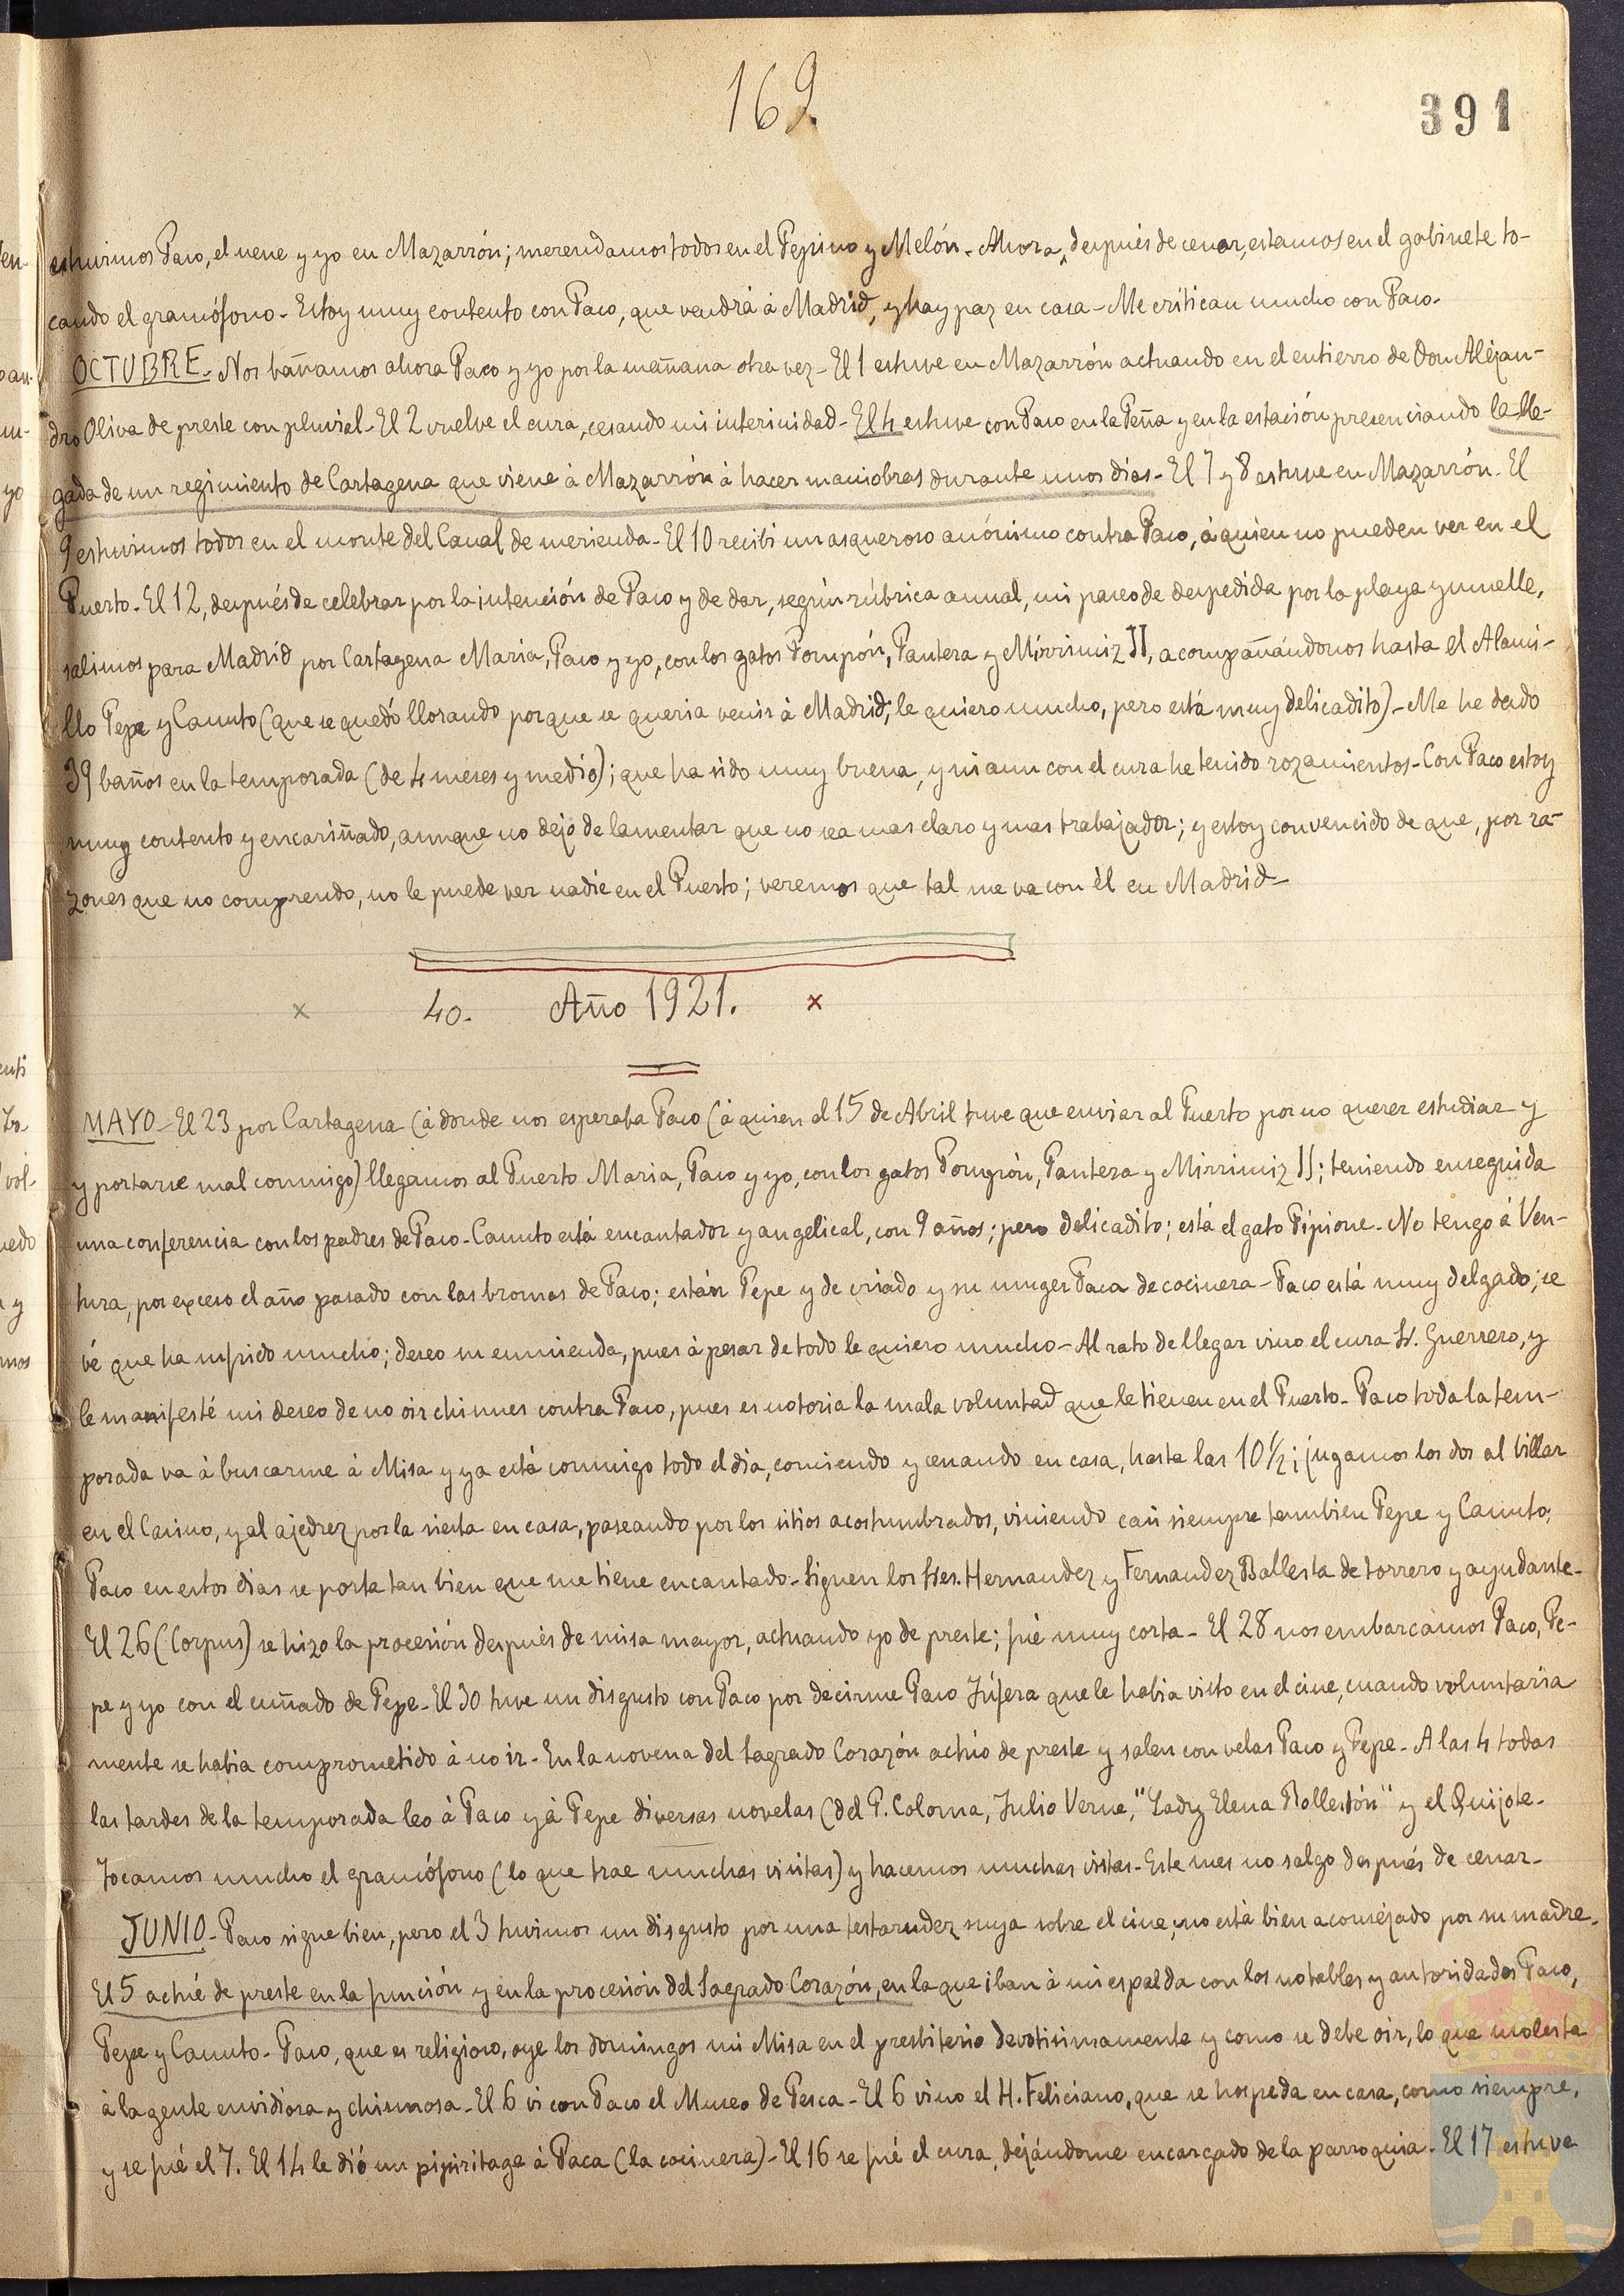 169.
391
estuvimos Paco, el nene y yo en Mazarrón; merendamos todos en el Pepino y Melón. - Ahora, después de cenar, estamos en el gabinete to-
cando el gramófono. - Estoy muy contento con Paco, que vendrá á Madrid, y hay paz en casa - Me critican mucho con Paco.
OCTUBRE. - Nos bañamos ahora Paco y yo por la mañana otra vez - El 1 estuve en Mazarrón actuando en el entierro de Don Alejan-
dro Oliva de preste con pluvial - El 2 vuelve el cura, cesando mi interinidad - El 4 estuve con Paco en la Peña y en la estación presenciando la lle-
gada de un regimiento de Cartagena que viene á Mazarrón á hacer maniobras durante unos dias - El 7 y 8 estuve en Mazarrón. El
9 estuvimos todos en el monte del Canal de merienda - El 10 recibi un asqueroso anónimo contra Paco, á quien no pueden ver en el
Puerto - El 12, después de celebrar por la intención de Paco y de dar, según rúbrica anual, mi paseo de despedida por la playa y muelle,
salimos para Madrid por Cartagena Maria, Paco y yo, con los gatos Pompón, Pantera y Mirrimiz II, acompañándonos hasta el Alami-
llo Pepe y Canuto (que se quedó llorando porque se queria venir á Madrid; le quiero mucho, pero está muy delicadito) - Me he dado
39 baños en la temporada (de 4 meses y medio); que ha sido muy buena, y ni aun con el cura he tenido rozamientos - Con Paco estoy
muy contento y encariñado, aunque no dejo de lamentar que no sea mas claro y mas trabajador; y estoy convencido de que, por ra-
zones que no comprendo, no le puede ver nadie en el Puerto; veremos que tal me va con él en Madrid -
x 40. Año 1921. x
MAYO - El 23 por Cartagena (á donde nos esperaba Paco (á quien el 15 de Abril tuve que enviar al Puerto por no querer estudiar y
y portarse mal conmigo) llegamos al Puerto Maria, Paco y yo, con los gatos Pompón, Pantera y Mirrimiz II; teniendo enseguida
una conferencia con los padres de Paco - Canuto está encantador y angelical, con 9 años; pero delicadito; está el gato Pipione - No tengo á Ven-
tura, por exceso el año pasado con las bromas de Paco; están Pepe y de criado y su muger Paca de cocinera - Paco está muy delgado; se
vé que ha sufrido mucho; deseo su enmienda, pues á pesar de todo le quiero mucho - Al rato de llegar vino el cura Sr. Guerrero, y
le manifesté mi deseo de no oir chismes contra Paco, pues es notoria la mala voluntad que le tienen en el Puerto - Paco toda la tem-
porada va á buscarme á Misa y ya está conmigo todo el dia, comiendo y cenando en casa, hasta las 10 1/2; jugamos los dos al billar
en el Casino, y al ajedrez por la siesta en casa, paseando por los sitios acostumbrados, viniendo casi siempre tambien Pepe y Canuto;
Paco en estos dias se porta tan bien que me tiene encantado. - Siguen los Sres. Hernandez y Fernandez Ballesta de torrero y ayudante -
El 26 (Corpus) se hizo la procesión después de misa mayor, actuando yo de preste; fué muy corta - El 28 nos embarcamos Paco, Pe-
pe y yo con el cuñado de Pepe - El 30 tuve un disgusto con Paco por decirme Paco Júfera que le habia visto en el cine, cuando voluntaria
mente se habia comprometido á no ir - En la novena del Sagrado Corazón actúo de preste y salen con velas Paco y Pepe - A las 4 todas
las tardes de la temporada leo á Paco y á Pepe diversas novelas (del P. Coloma, Julio Verne, "Lady Elena Rollestón" y el Quijote -
Tocamos mucho el gramófono (lo que trae muchas visitas) y hacemos muchas vistas - Este mes no salgo después de cenar -
JUNIO - Paco sigue bien, pero el 3 tuvimos un disgusto por una testarudez suya sobre el cine; no está bien aconsejado por su madre.
El 5 actué de preste en la función y en la procesión del Sagrado Corazón, en la que iban á mi espalda con los notables y autoridades Paco,
Pepe y Canuto - Paco, que es religioso, oye los domingos mi Misa en el presbiterio devotisimamente y como se debe oir, lo que molesta
á la gente envidiosa y chismosa - El 6 vi con Paco el Museo de Pesca - El 6 vino el H. Feliciano, que se hospeda en casa, como siempre,
y se fué el 7. El 14 le dió un pipiritage á Paca (la cocinera) - El 16 se fué el cura, dejándome encargado de la parroquia - El 17 estuve